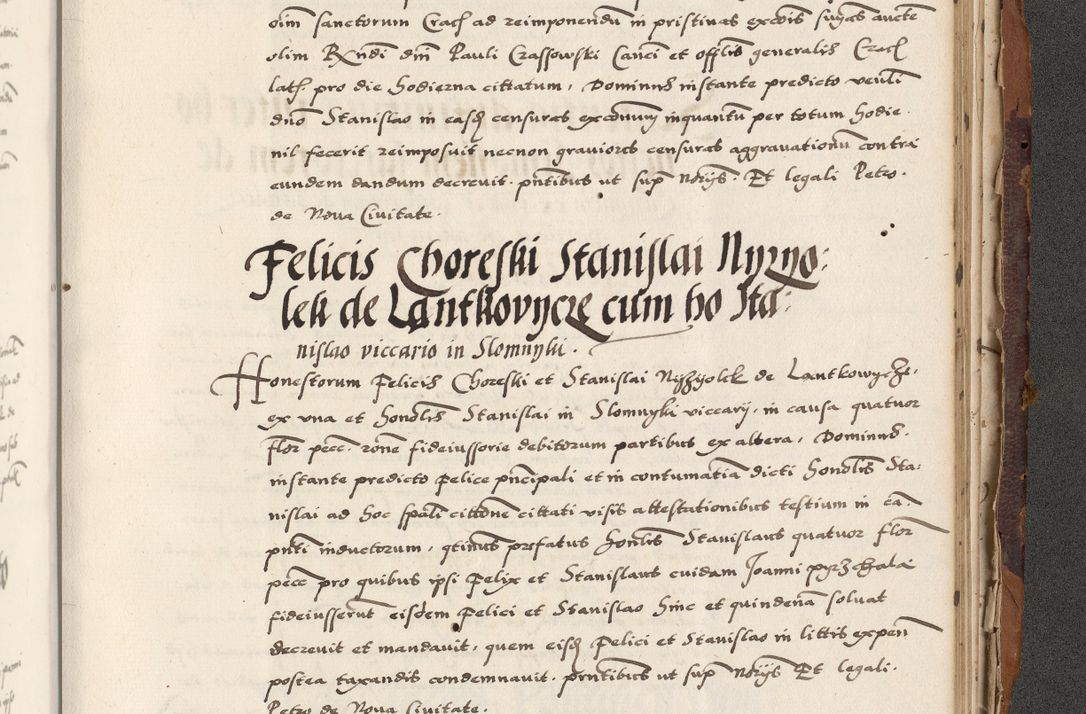 oim̄ sanctorum Crac̄ ad reimponendū in pristinas excōis suas aucte
olim Rx̄ndi dn̄i Pauli Crassowski Canci et offlis generalis Crac̄
latis pro die hodierna cittatum, Dominus instante predicto venli
dn̄o Stanislao in easd censuras excōnum inquantū per totum hodie
nil fecerit reimposuit necnon graviores censuras aggravationū contra
eundem dandum decrevit. pn̄tibus ut sup̄ notrijs. Et legali Petro.
de Nova Civitate.
Felicis Choreski Stanislai Nyzyo:
lek de Lantkovycze cum ho Sta:
nislao viccario in Slomnyki.
Honestorum Felicis Choreski et Stanislai Nyzyolek de Lantkowycze,
ex una et honolis Stanislai in Slomnyki viccarij. in causa quatuor
flor̄ pecc̄. rōne fideiussorie debitorum partibus ex altera, Dominus.
instante predicto Felice pn̄cipali et in contumatia dicti honolis Sta:
nislai ad hoc sp̄ali cittōne cittati visis attestationibus testium in ea
pn̄ti inductorum, qtinus prefatus honlis Stanislaus quatuor flor̄
pecc̄ pro quibus ipsi Felix et Stanislaus cuidam Joanni Przchala
fideiusserūt eisdem Felici et Stanislao hinc et quindenā solvat
decrevit et mandavit, quem eisd Felici et Stanislao in littis expen̄
postea taxandis condemnavit. pn̄tibus ut sup̄ notrijs Et legali.
Petro de Nova Civitate.